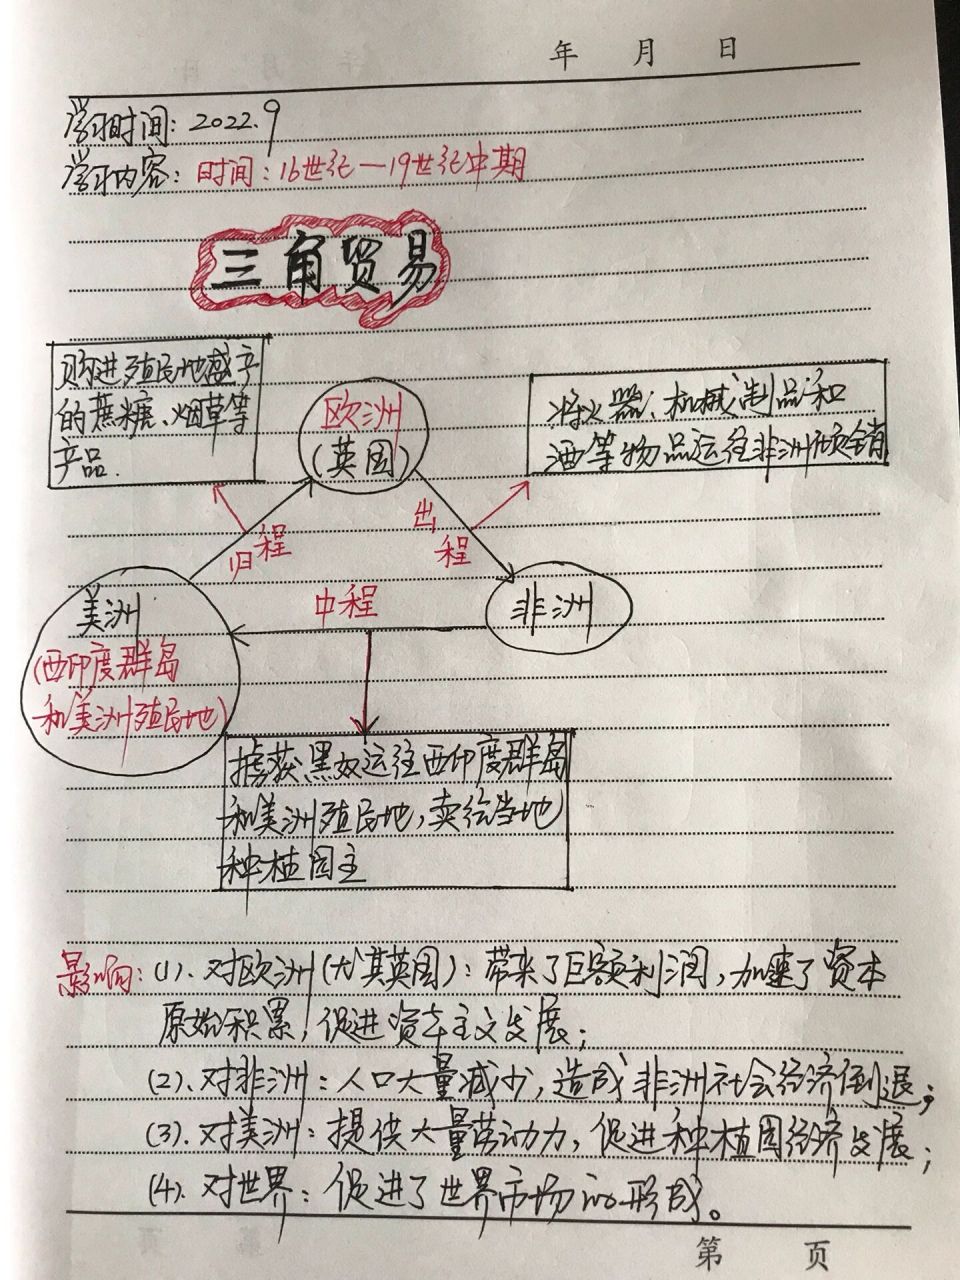 年 月 日
学习时间：2022.9
学习内容：时间：16世纪—19世纪中期
三角贸易
购进殖民地盛产
的蔗糖、烟草等
产品.
欧洲
(英国)
将火器、机械制品和
酒等物品运往非洲倾销
归程
出程
中程
美洲
(西印度群岛
和美洲殖民地)
非洲
掳获黑奴运往西印度群岛
和美洲殖民地,卖给当地
种植园主
影响：(1).对欧洲(尤其英国)：带来了巨额利润,加速了资本
原始积累,促进资本主义发展；
(2).对非洲：人口大量减少,造成非洲社会经济倒退；
(3).对美洲：提供大量劳动力,促进种植园经济发展；
(4).对世界：促进了世界市场的形成。
第 页